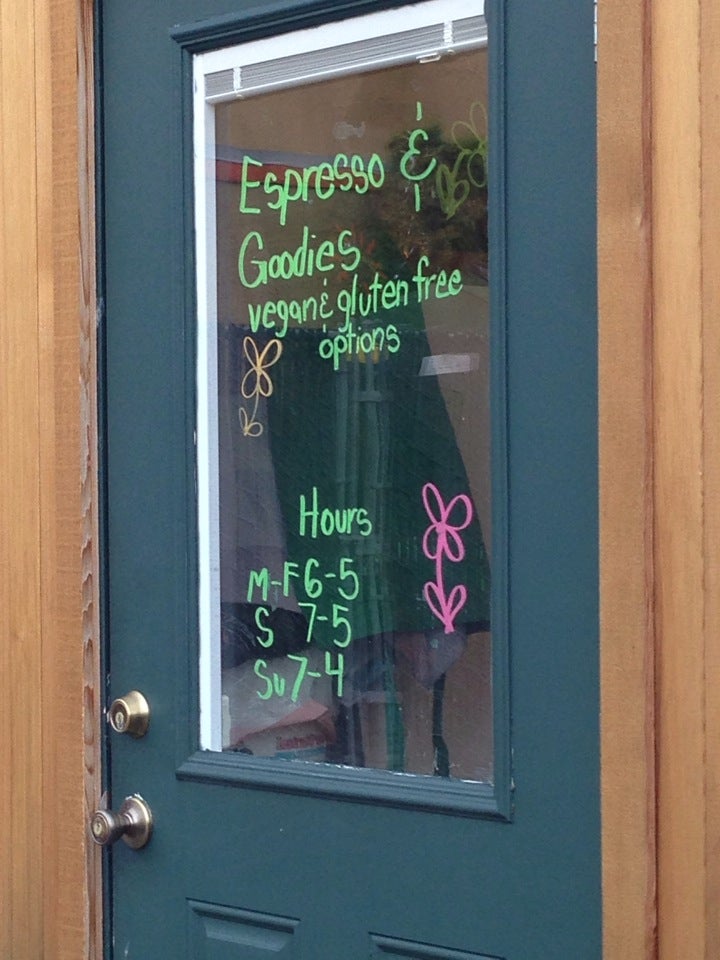 Espresso &
Goodies
vegan & gluten free
options
Hours
M-F 6-5
S 7-5
Su 7-4